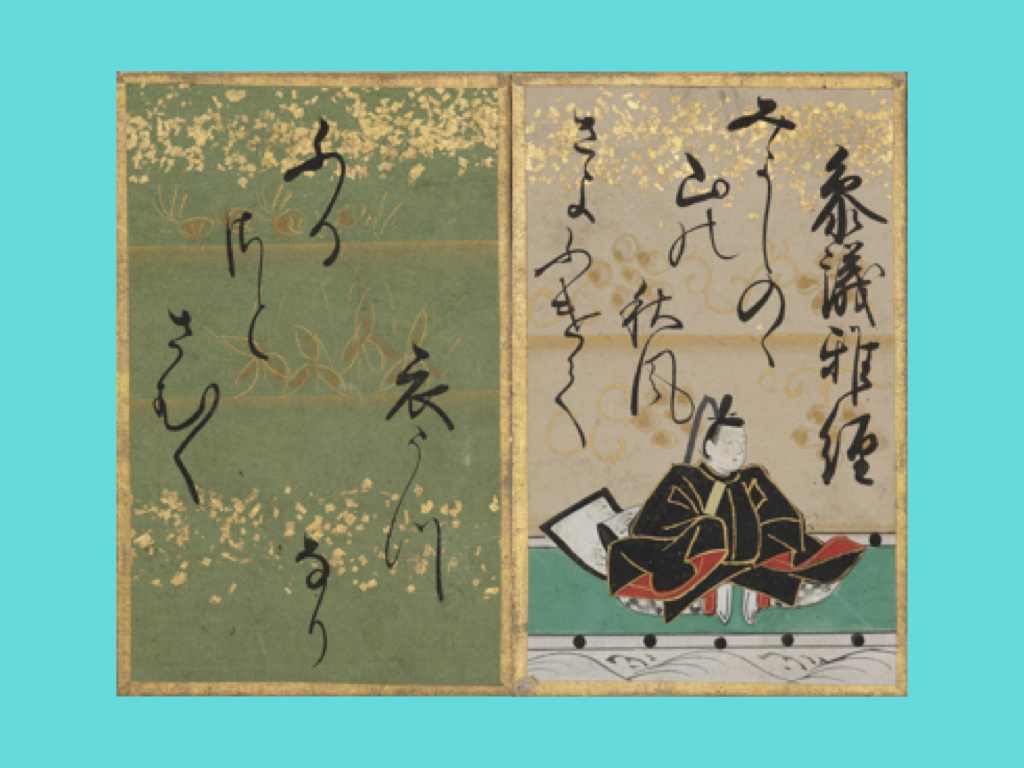 參議雅經
みよしのゝ
山の秋風
さよふけて
ふる
さと
さむく
衣うつ
なり